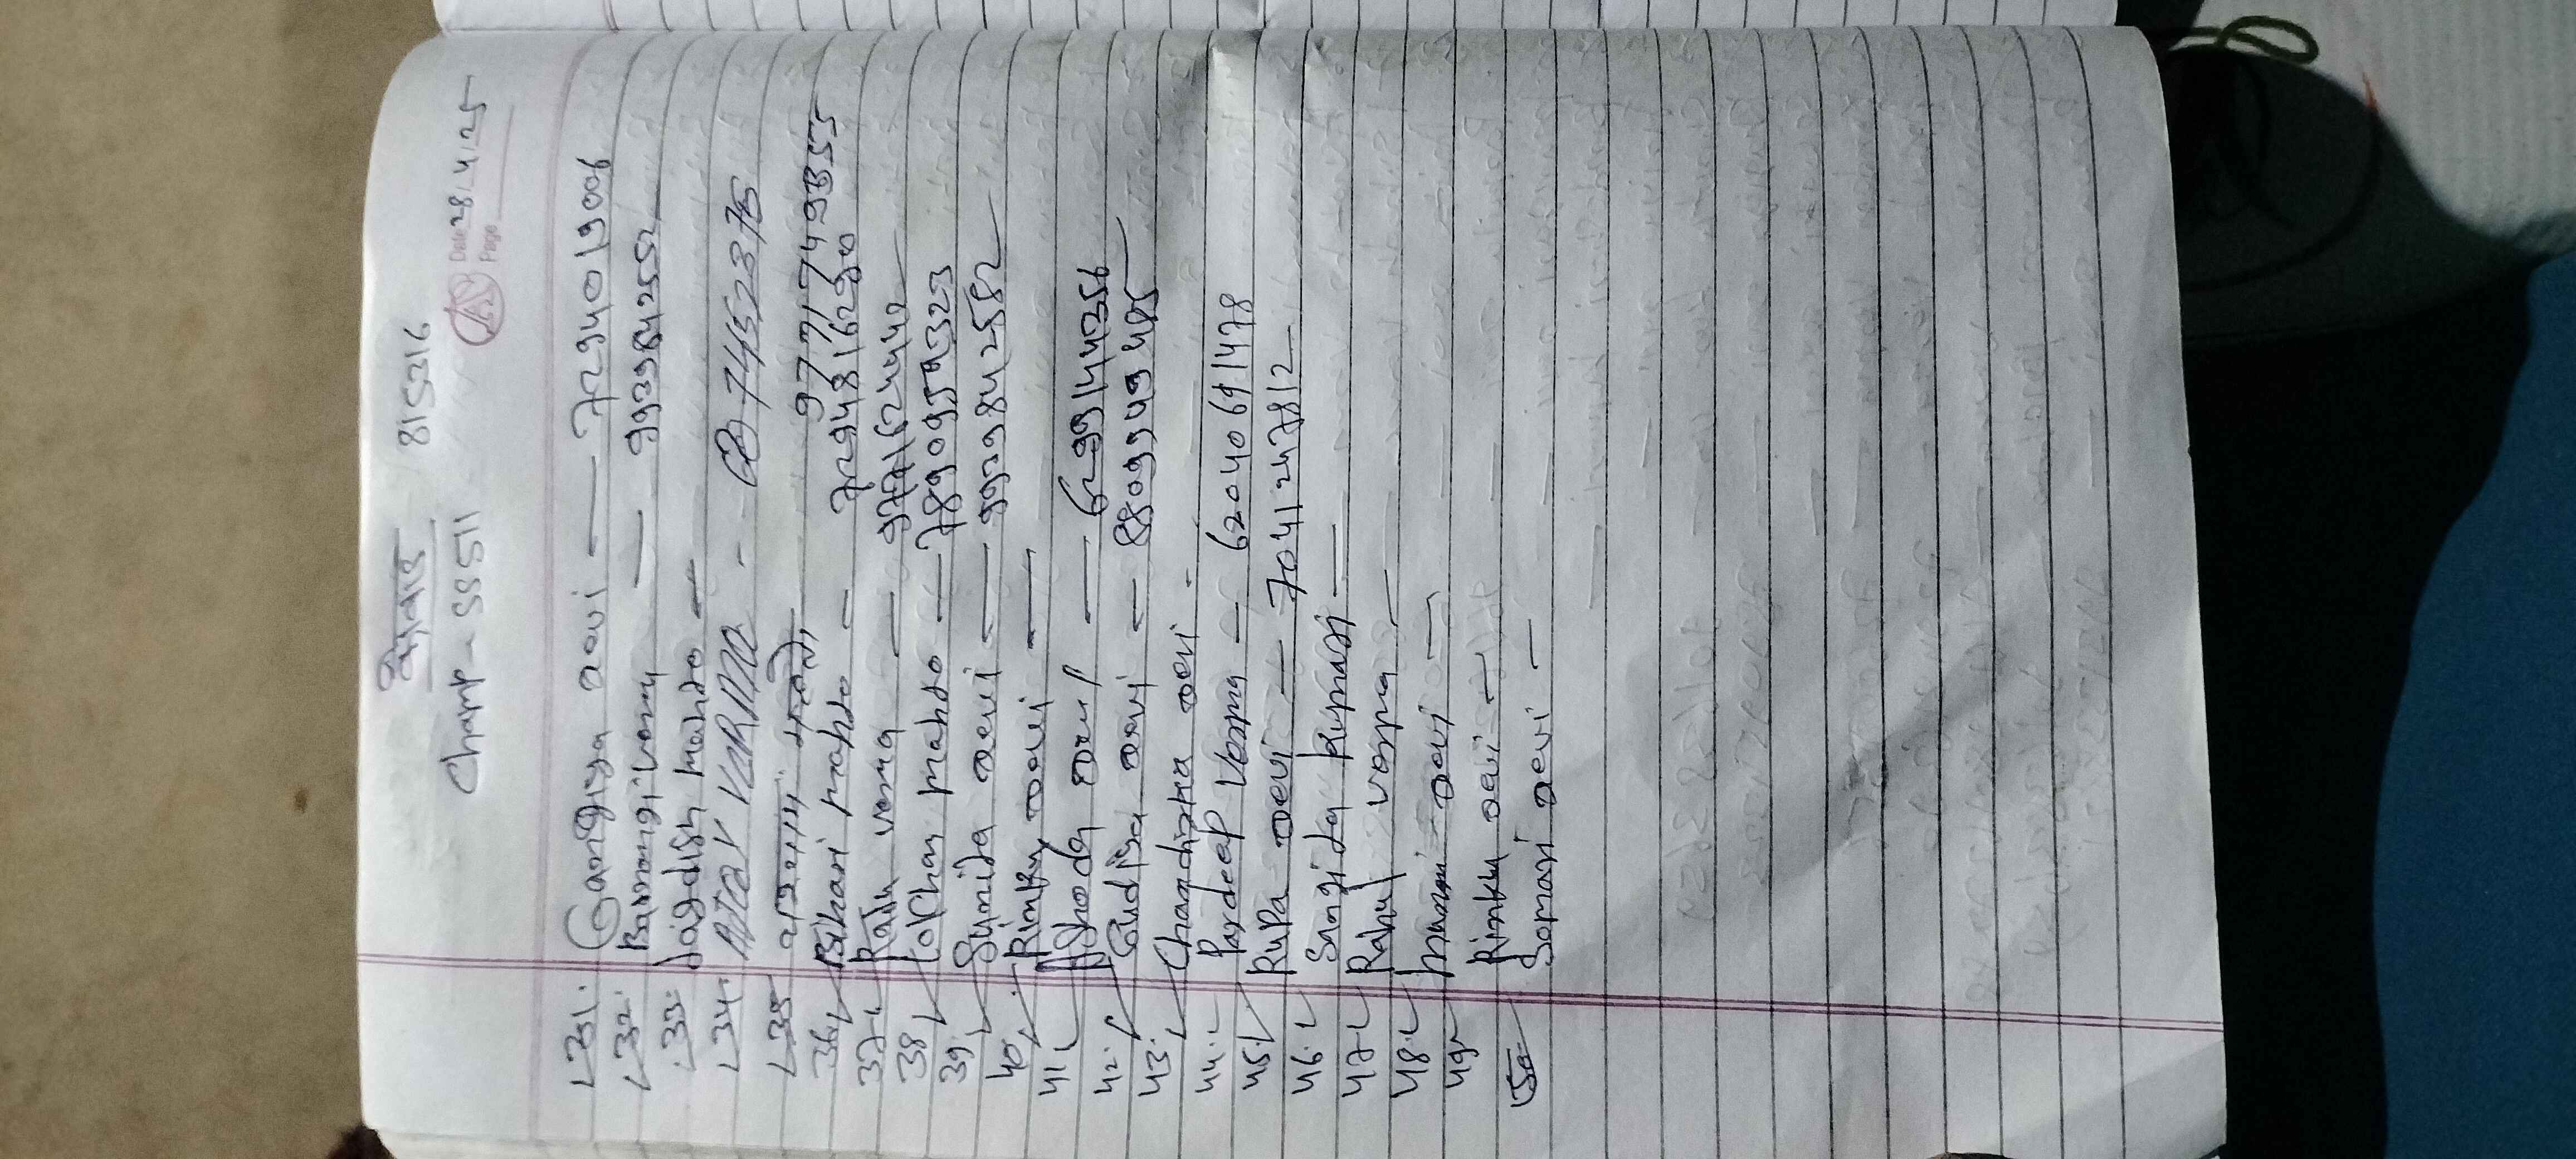 815316
Champ - SS511
Date 28/4/25
Page
31. Gangiya Devi — 7294019006
32. Basmagi verma — 9939842552
33. Jagdish mahto —
34. AJAY VERMA - 7745523
35.
36. Bihari mahto — 7294816290
37. Raju verma — 9771624442
38. Lolchan mahto — 7890959323
39. Sunita Devi — 9939842552
40. Rinky Devi —
41. Ashoda Devi — 6299144356
42. Gudiya Devi — 8809949405
43. Chandrika Devi -
44. Pardeep Verma — 62040691478
45. Rupa Devi — 7041247812 —
46. Sangita Kumari —
47. Rahul verma —
48. munni Devi —
49. Rinku Devi —
50. Somari Devi —